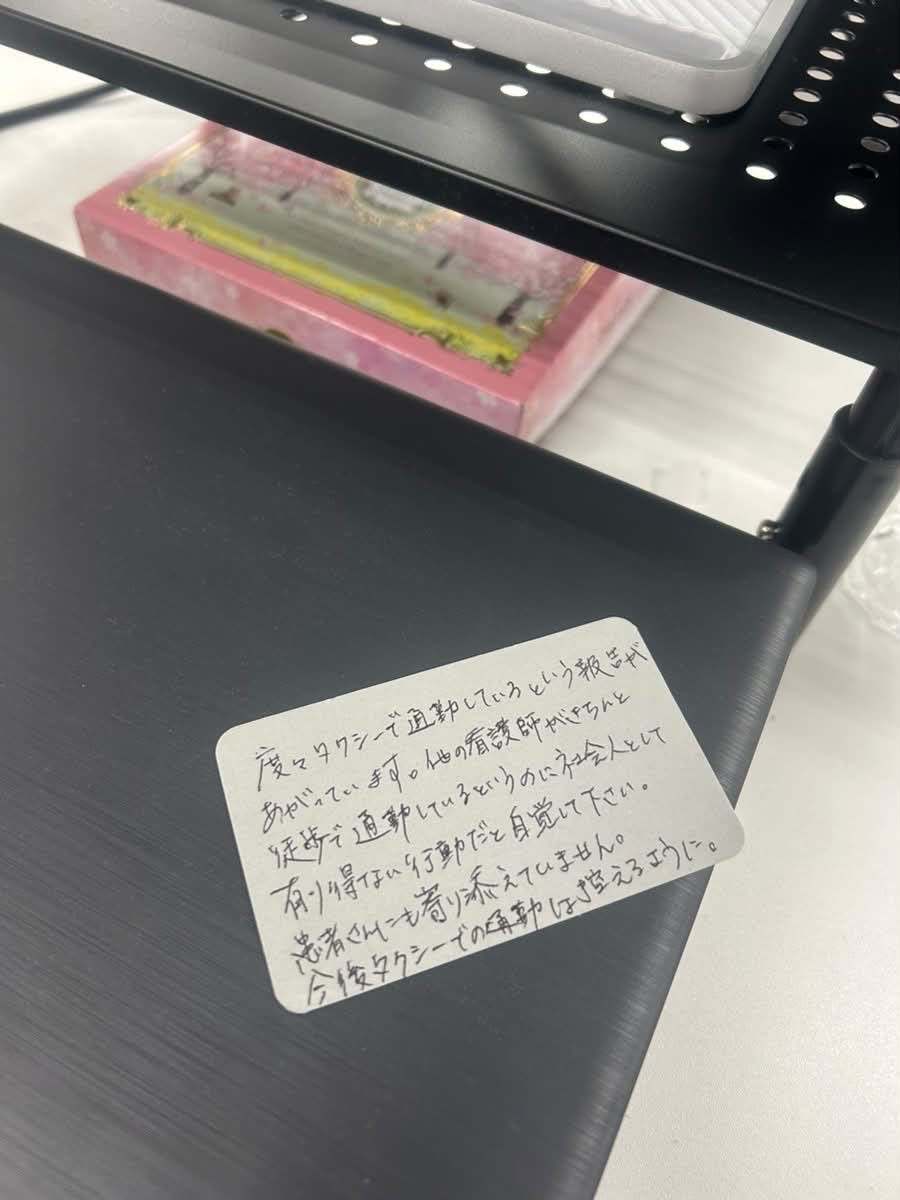 度々タクシーで通勤しているという報告が
あがっています。他の看護師がきちんと
徒歩で通勤しているというのに社会人として
有り得ない行動だと自覚して下さい。
患者さんにも寄り添えていません。
今後タクシーでの通勤は控えるように。